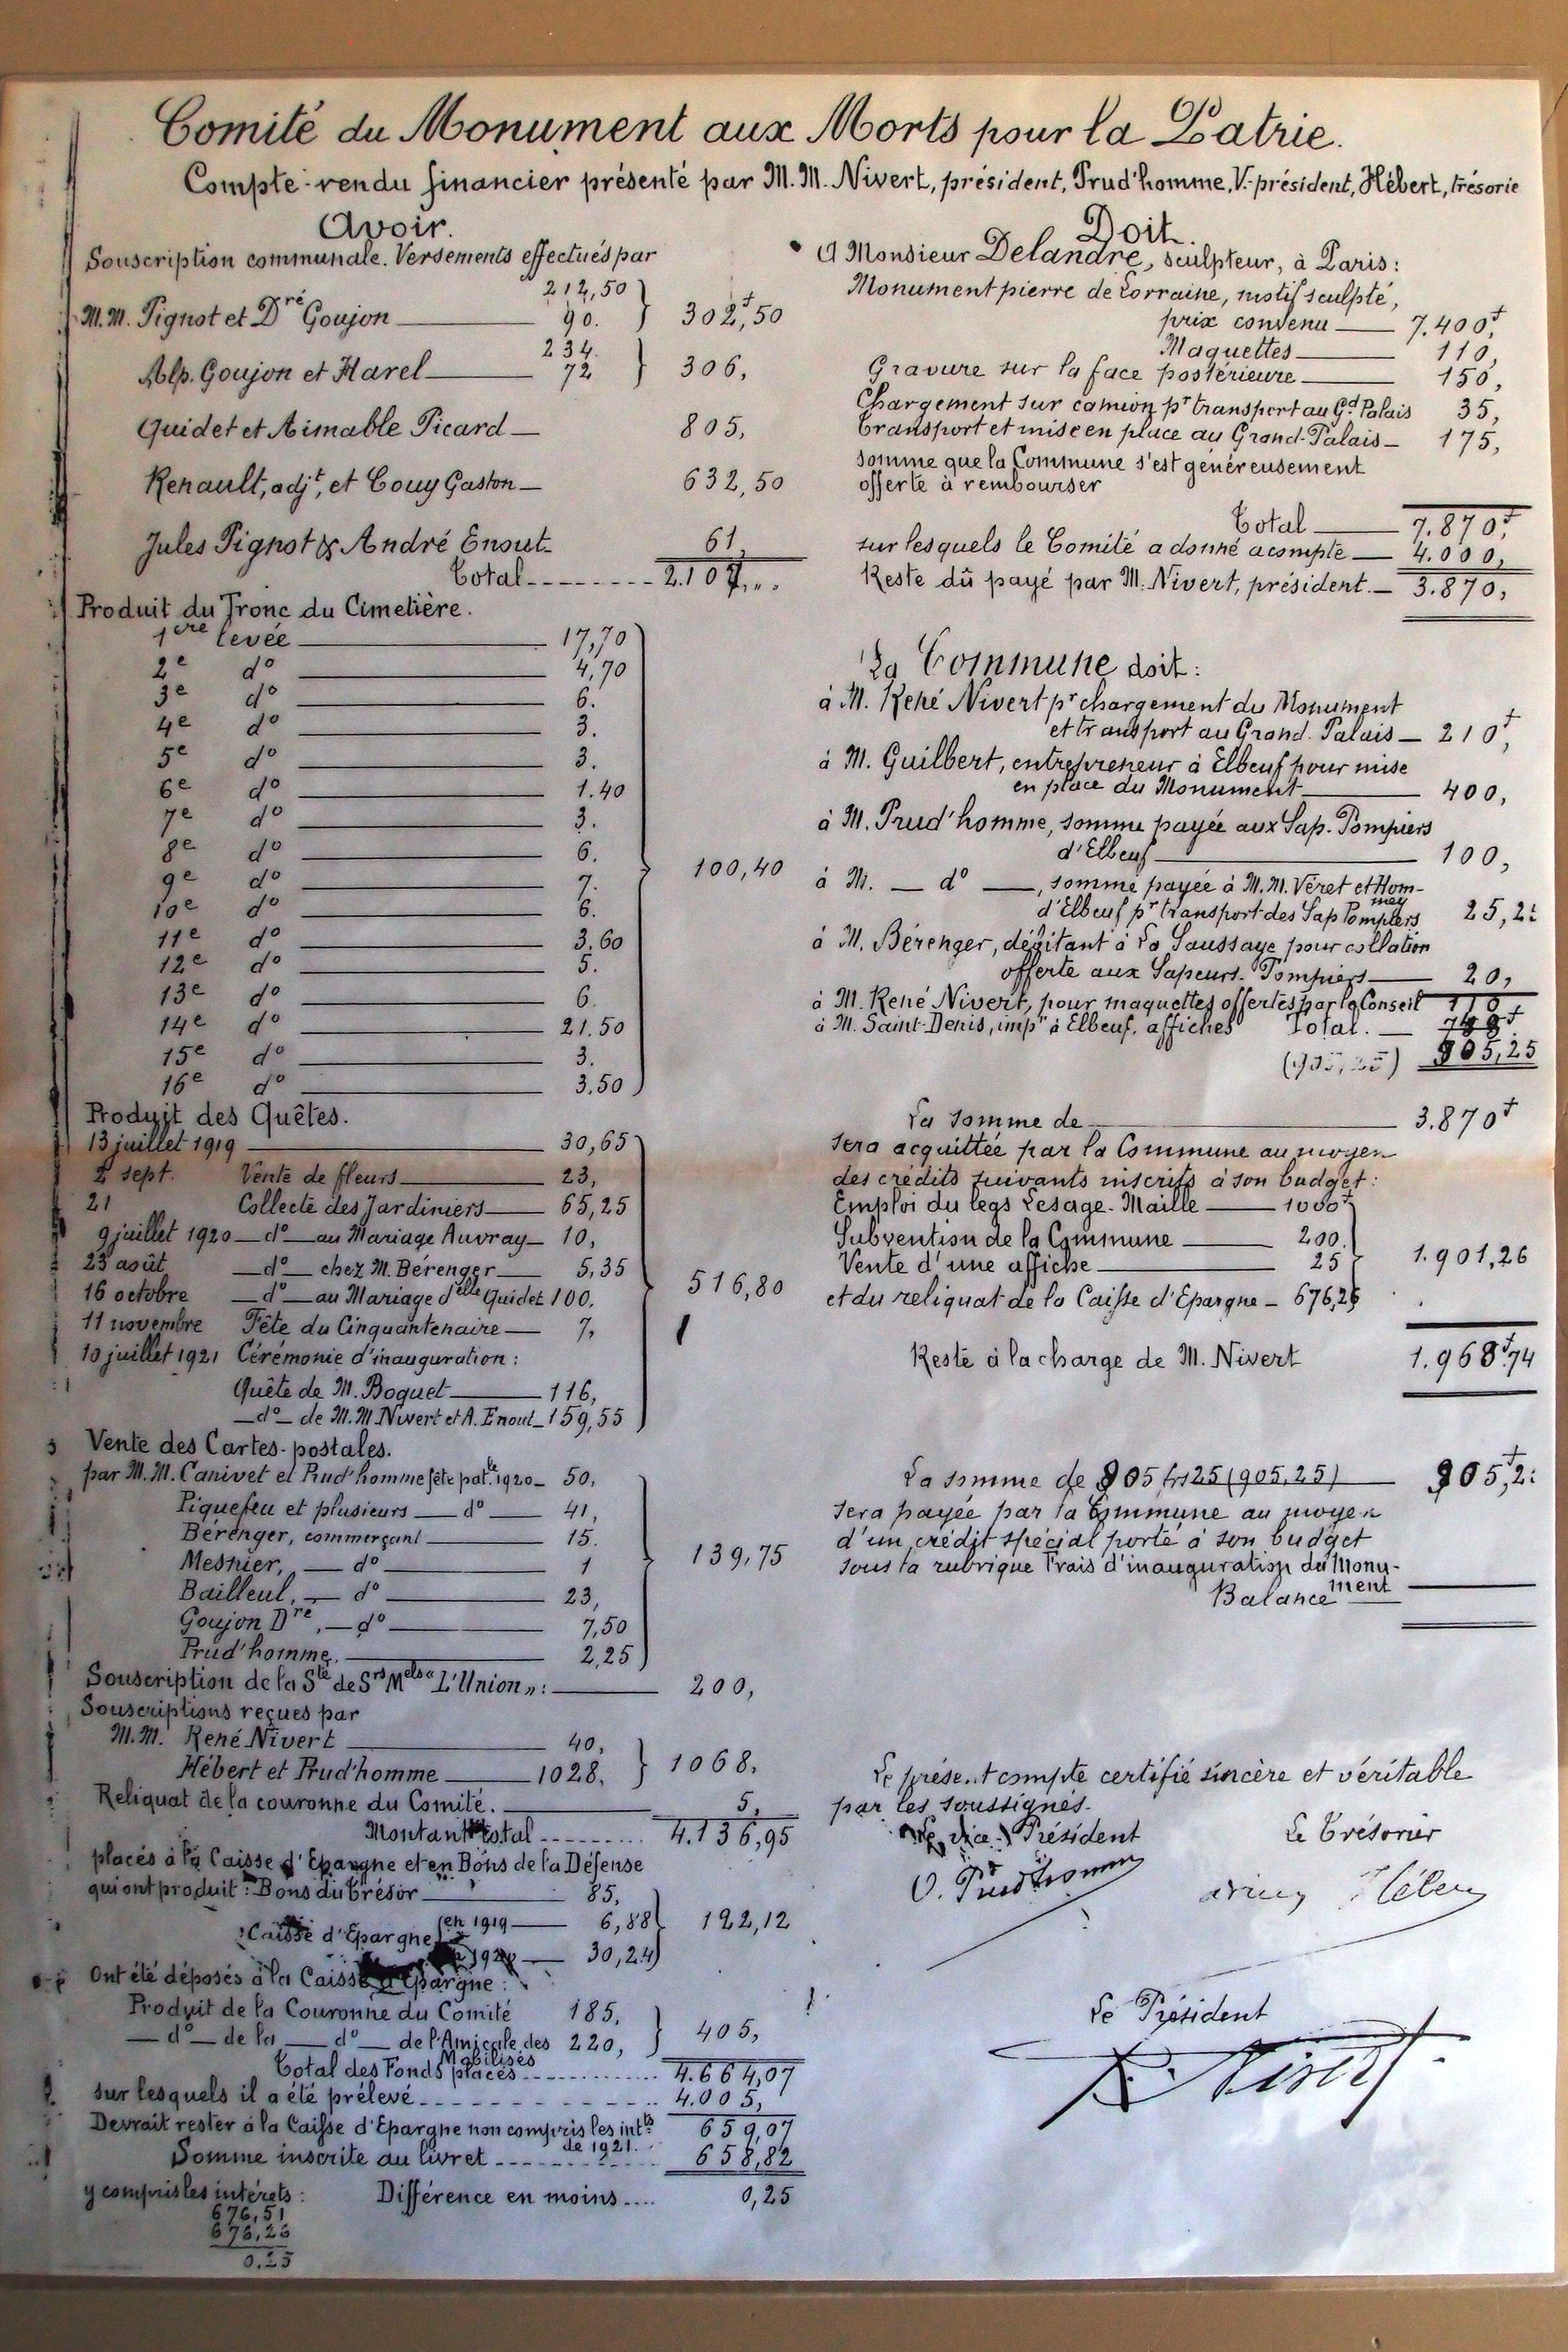 Comité du Monument aux Morts pour la Patrie.
Compte-rendu financier présenté par M.M. Nivert, président, Prud'homme, V.-président, Hébert, trésorie
Avoir.
Souscription communale. Versements effectués par
212,50
M.M. Pignot et Dré Goujon 90. 302f,50
234.
Alp. Goujon et Harel 72 306,
Guidet et Aimable Picard 805,
Renault, adjt, et Couy Gaston 632,50
Jules Pignot & André Enout 61,
Total 2.107,..
Produit du Tronc du Cimetière.
1ère levée 17,70
2e do 4,70
3e do 6.
4e do 3.
5e do 3.
6e do 1.40
7e do 3.
8e do 6.
9e do 7. 100,40
10e do 6.
11e do 3.60
12e do 5.
13e do 6.
14e do 21.50
15e do 3.
16e do 3,50
Produit des Quêtes.
13 juillet 1919 30,65
2 sept. Vente de fleurs 23,
21 Collecte des Jardiniers 65,25
9 juillet 1920 — do — au Mariage Auvray 10,
23 août — do — chez M. Bérenger 5,35
16 octobre — do — au Mariage delle Guidet 100. 516,80
11 novembre Fête du Cinquantenaire 7,
10 juillet 1921 Cérémonie d'inauguration :
Quête de M. Boquet 116,
— do — de M.M Nivert et A. Enout 159,55
Vente des Cartes-postales.
par M.M. Canivet et Prud'homme fête patle 1920 50,
Piquefeu et plusieurs — do — 41,
Bérenger, commerçant 15.
Mesnier, — do 1 139,75
Bailleul, — do 23,
Goujon Dré, — do 7,50
Prud'homme. 2,25
Souscription de la Sté de Srs Mels "L'Union" : 200,
Souscriptions reçues par
M.M. René Nivert 40,
Hébert et Prud'homme 1028, 1068,
Reliquat de la couronne du Comité. 5,
Montant total 4.136,95
placés à la Caisse d'Epargne et en Bons de la Défense
qui ont produit : Bons du Trésor 85,
Caisse d'Epargne en 1919 6,88 192,12
30,24
Ont été déposés à la Caisse d'Epargne :
Produit de la Couronne du Comité 185,
— do — de la — do — de l'Amicale des Mobilisés 220, 405,
Total des Fonds placés 4.664,07
sur lesquels il a été prélevé 4.005,
Devrait rester à la Caisse d'Epargne non compris les intts de 1921. 659,07
Somme inscrite au livret 658,82
y compris les intérêts : Différence en moins 0,25
676,51
676,26
0,25
Doit.
A Monsieur Delandre, sculpteur, à Paris :
Monument pierre de Lorraine, motif sculpté,
prix convenu 7.400f,
Maquettes 110,
Gravure sur la face postérieure 150,
Chargement sur camion pr transport au Gd Palais 35,
Transport et mise en place au Grand-Palais 175,
somme que la Commune s'est généreusement
offerte à rembourser
Total 7.870f,
sur lesquels le Comité a donné acompte 4.000,
Reste dû payé par M. Nivert, président. 3.870,
La Commune doit :
à M. René Nivert pr chargement du Monument
et transport au Grand-Palais 210f,
à M. Guilbert, entrepreneur à Elbeuf pour mise
en place du Monument 400,
à M. Prud'homme, somme payée aux Sap.-Pompiers
d'Elbeuf 100,
à M. — do —, somme payée à M.M. Véret et Hommey
d'Elbeuf pr transport des Sap Pompiers 25,2
à M. Bérenger, débitant à La Saussaye pour collation
offerte aux Sapeurs-Pompiers 20,
à M. René Nivert, pour maquettes offertes par le Conseil 110
à M. Saint-Denis, impr à Elbeuf, affiches Total.
(905,25) 905,25
La somme de 3.870f
sera acquittée par la Commune au moyen
des crédits suivants inscrits à son budget :
Emploi du legs Lesage-Maille 1000f
Subvention de la Commune 200.
Vente d'une affiche 25 1.901,26
et du reliquat de la Caisse d'Epargne 676,26
Reste à la charge de M. Nivert 1.968f.74
La somme de 905 frs 25 (905,25) 905f,2
sera payée par la Commune au moyen
d'un crédit spécial porté à son budget
sous la rubrique Frais d'inauguration du Monument
Balance
Le présent compte certifié sincère et véritable
par les soussignés.
Le vice-Président Le Trésorier
O. Prudhomme Hébert
Le Président
R. Nivert